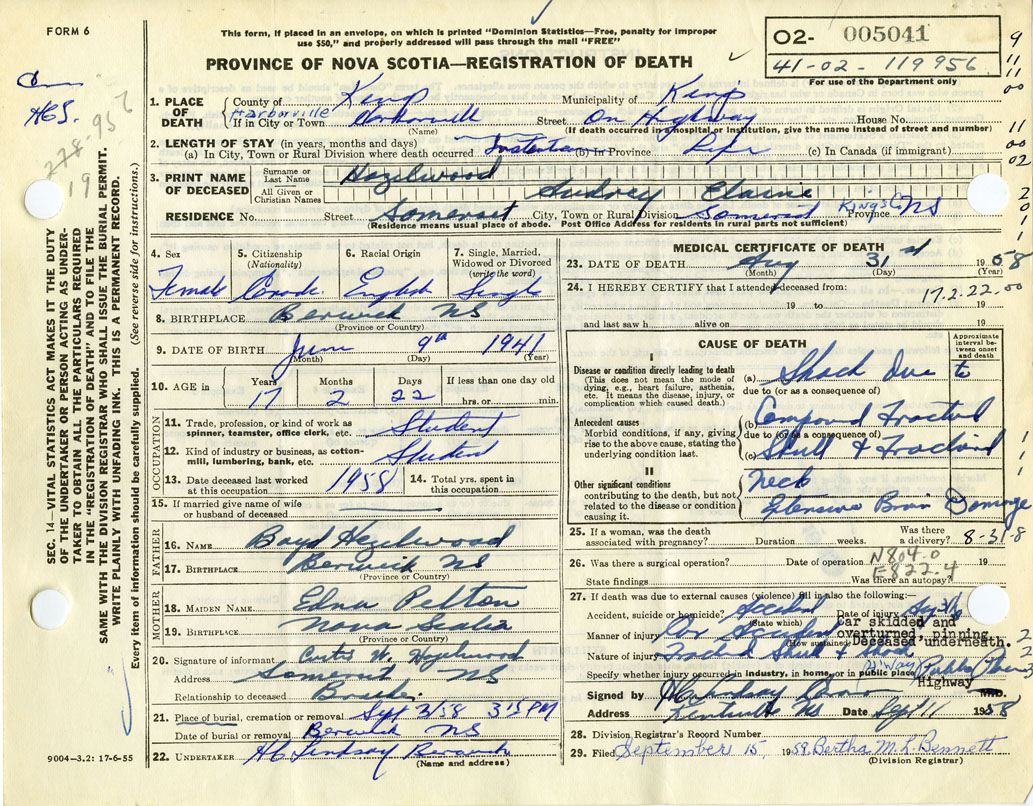 FORM 6
This form, if placed in an envelope, on which is printed "Dominion Statistics—Free, penalty for improper
use $50," and properly addressed will pass through the mail "FREE"
PROVINCE OF NOVA SCOTIA—REGISTRATION OF DEATH
O2- 005041
41-02-119956
For use of the Department only
9
11
11
00
11
00
02
HGS.
278-956
19
SEC. 14—VITAL STATISTICS ACT MAKES IT THE DUTY
OF THE UNDERTAKER OR PERSON ACTING AS UNDER-
TAKER TO OBTAIN ALL THE PARTICULARS REQUIRED
IN THE "REGISTRATION OF DEATH" AND TO FILE THE
SAME WITH THE DIVISION REGISTRAR WHO SHALL ISSUE THE BURIAL PERMIT.
WRITE PLAINLY WITH UNFADING INK. THIS IS A PERMANENT RECORD.
Every item of information should be carefully supplied. (See reverse side for instructions.)
1. PLACE OF DEATH
County of Kings Municipality of Kings
Harborville
If in City or Town Harborville Street On Highway House No.
(Name) (If death occurred in a hospital or institution, give the name instead of street and number)
2. LENGTH OF STAY (in years, months and days)
(a) In City, Town or Rural Division where death occurred (b) In Province Life (c) In Canada (if immigrant)
3. PRINT NAME OF DECEASED
Surname or Last Name Hazelwood
All Given or Christian Names Audrey Elaine
RESIDENCE No. Street Somerset City, Town or Rural Division Somerset Kings Co. Province NS
(Residence means usual place of abode. Post Office Address for residents in rural parts not sufficient)
4. Sex
Female
5. Citizenship
(Nationality)
6. Racial Origin
English
7. Single, Married,
Widowed or Divorced
(write the word)
Single
8. BIRTHPLACE Berwick NS
(Province or Country)
9. DATE OF BIRTH June 9th 1941
(Month) (Day) (Year)
10. AGE in
Years Months Days If less than one day old
17 2 22 hrs. or min.
OCCUPATION
11. Trade, profession, or kind of work as
spinner, teamster, office clerk, etc. Student
12. Kind of industry or business, as cotton-
mill, lumbering, bank, etc. Student
13. Date deceased last worked
at this occupation 1958
14. Total yrs. spent in
this occupation
15. If married give name of wife
or husband of deceased
FATHER
16. NAME Boyd Hazelwood
17. BIRTHPLACE Berwick NS
(Province or Country)
MOTHER
18. MAIDEN NAME Edna Pelton
19. BIRTHPLACE Nova Scotia
(Province or Country)
20. Signature of informant Curtis W. Hazelwood
Address Somerset NS
Relationship to deceased Brother
21. Place of burial, cremation or removal Sept 3/58 3:15 PM
Date of burial or removal Berwick NS
22. UNDERTAKER HC Lindsay Berwick
(Name and address)
9004—3.2: 17-6-55
MEDICAL CERTIFICATE OF DEATH
23. DATE OF DEATH Aug 31st 1958
(Month) (Day) (Year)
24. I HEREBY CERTIFY that I attended deceased from:
17.2.22.00
19 to 19
and last saw h alive on 19
CAUSE OF DEATH
Approximate
interval between onset
and death
I
Disease or condition directly leading to death
(This does not mean the mode of
dying, e.g., heart failure, asthenia,
etc. It means the disease, injury, or
complication which caused death.)
(a) Shock Due to
due to (or as a consequence of)
Antecedent causes
Morbid conditions, if any, giving
rise to the above cause, stating the
underlying condition last.
(b) Compound Fractured
due to (or as a consequence of)
(c) Skull & Fractured
II
Other significant conditions
contributing to the death, but not
related to the disease or condition
causing it.
Neck
Extensive Brain Damage
25. If a woman, was the death
associated with pregnancy? Duration weeks. Was there
a delivery? 8-31-8
26. Was there a surgical operation? Date of operation 19
N804.0
E822.4
State findings Was there an autopsy?
27. If death was due to external causes (violence) fill in also the following:—
Accident, suicide or homicide? Accident Date of injury Aug 31
(State which)
car skidded and
Manner of injury Car Accident overturned, pinning
(How sustained) Deceased underneath.
Nature of injury Fractured Skull & Shock
Specify whether injury occurred in industry, in home, or in public place H'way Public
Highway
Signed by
Address Kentville NS Date Sept 11 1958
28. Division Registrar's Record Number
29. Filed September 15, 1958. Bertha M. L. Bennett
(Division Registrar)